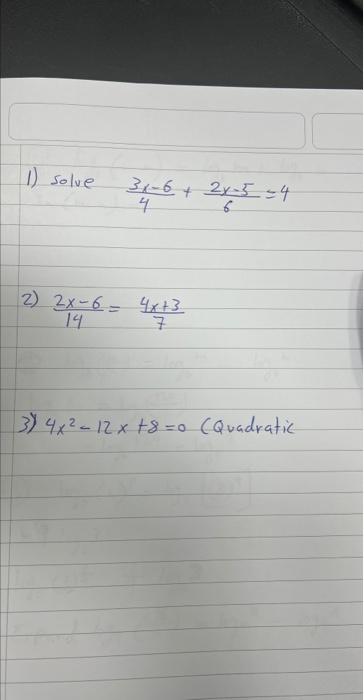 1) solve (3x-6)/4 + (2x-5)/6 = 4
2) (2x-6)/14 = (4x+3)/7
3) 4x² - 12x + 8 = 0 (Quadratic